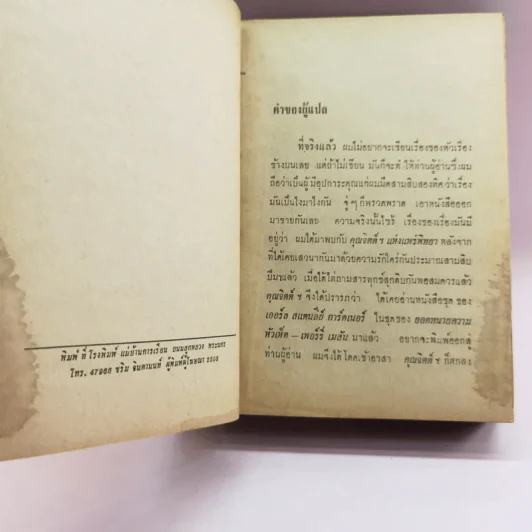 พิมพ์ ที่ โรงพิมพ์ แม่บ้านการเรือน ถนนลูกหลวง พระนคร
โทร. 47966 จรัม จินตานนท์ ผู้พิมพ์ผู้โฆษณา
คำของผู้แปล
ที่จริงแล้ว ผมไม่อยากจะเขียนเรื่องของตัวเรื่อง
ข้างบนเลย แต่ถ้าไม่เขียน มันก็จะทำให้ท่านผู้อ่านซึ่งผม
ถือว่าเป็นผู้มีอุปการะคุณแก่ผมมืดสามสิบสองทิศว่าเรื่อง
มันเป็นไงมาไงกัน จู่ๆ ก็พรวดพราด เอาหนังสือออก
มาขายกันเลย ความจริงนั้นไซร้ เรื่องของเรื่องมันมี
อยู่ว่า ผมได้มาพบกับ คุณจิตต์ฯ แห่งแพร่พิทยา หลังจาก
ที่ได้เคยเสวนากันมาด้วยความรักใคร่กันประมาณสามสิบ
ปีมาแล้ว เมื่อได้ไต่ถามสารทุกข์สุกดิบกันพอสมควรแล้ว
คุณจิตต์ฯ จึงได้ปรารภว่า ได้เคยอ่านหนังสือชุด ของ
เออร์ล สแตนลี่ย์ การ์ดเนอร์ ในชุดของ ยอดทนายความ
หัวเห็ด — เพอร์รี่ เมสัน มาแล้ว อยากจะพิมพ์ออกสู่
ท่านผู้อ่าน ผมจึงได้ เข้าอาสา คุณจิตต์ฯ ก็ตกลง